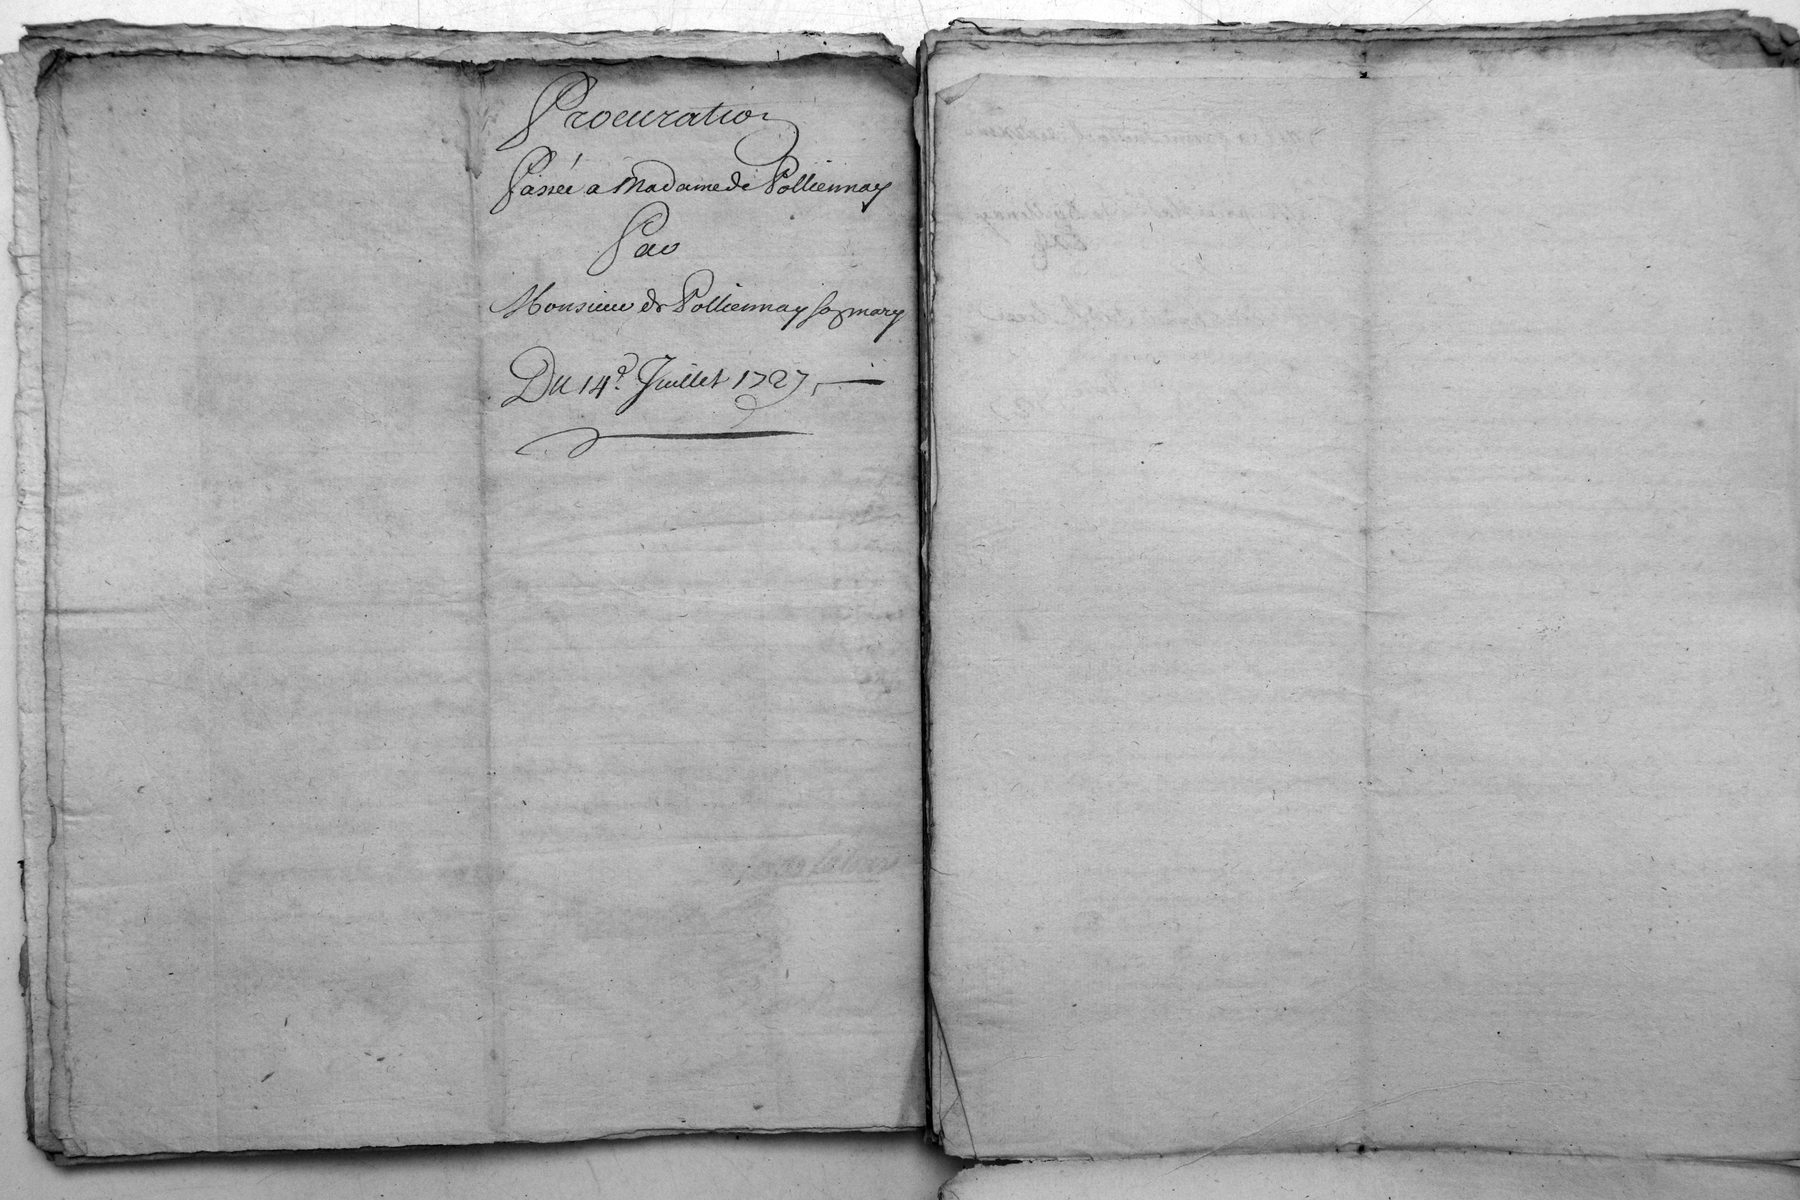 Procuration
Passée a Madame de Polliennay
Par
Monsieur de Polliennay son mary
Du 14e. Juillet 1727,